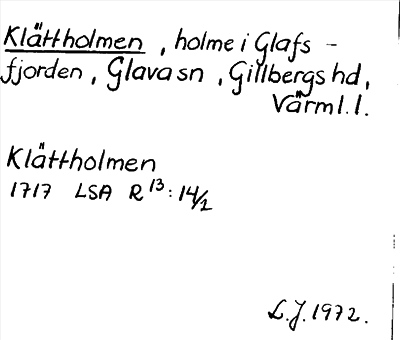 Klättholmen, holme i Glafs-
fjorden, Glava sn, Gillbergs hd,
Värml. l.
Klättholmen
1717 LSA R 13:14/2
L.J. 1972.